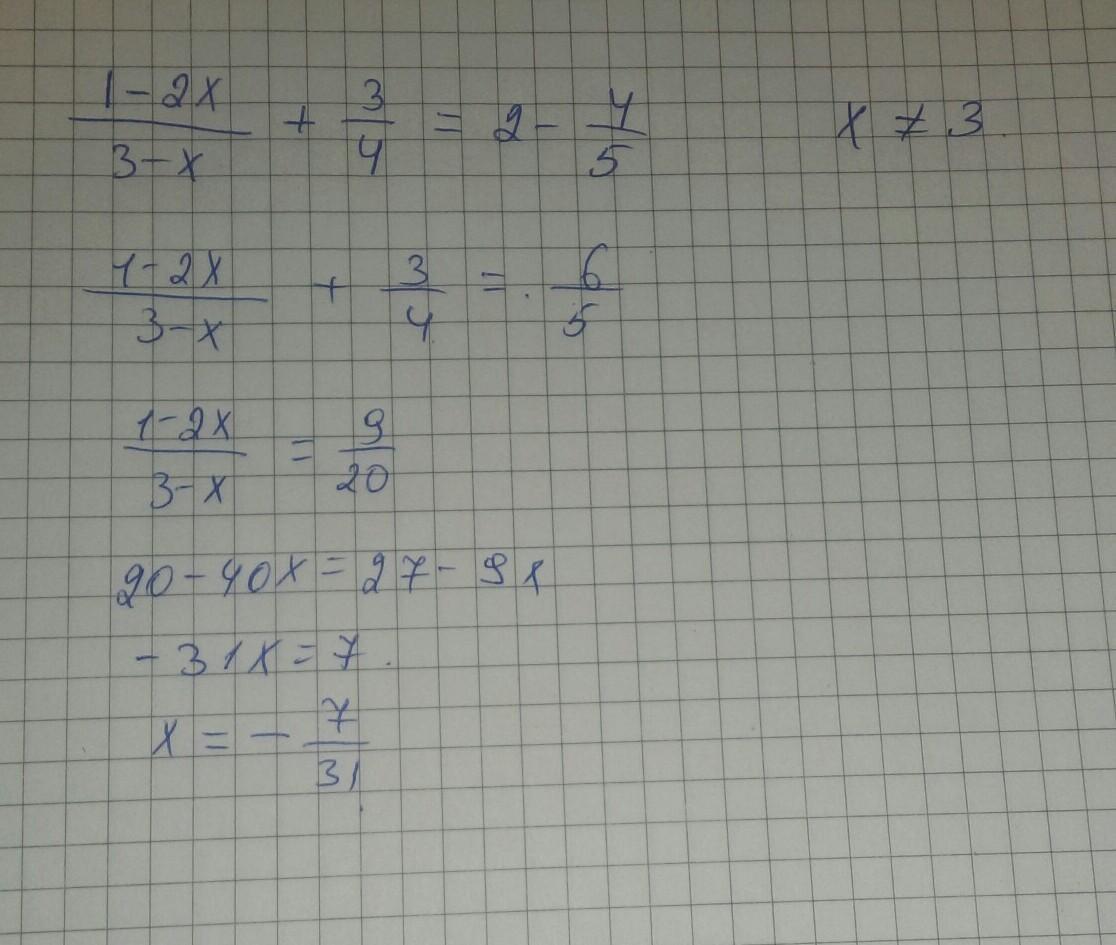 (1-2x)/(3-x) + 3/4 = 2 - 4/5   x ≠ 3.
(1-2x)/(3-x) + 3/4 = 6/5
(1-2x)/(3-x) = 9/20
20-40x = 27-9x
-31x = 7.
x = - 7/31